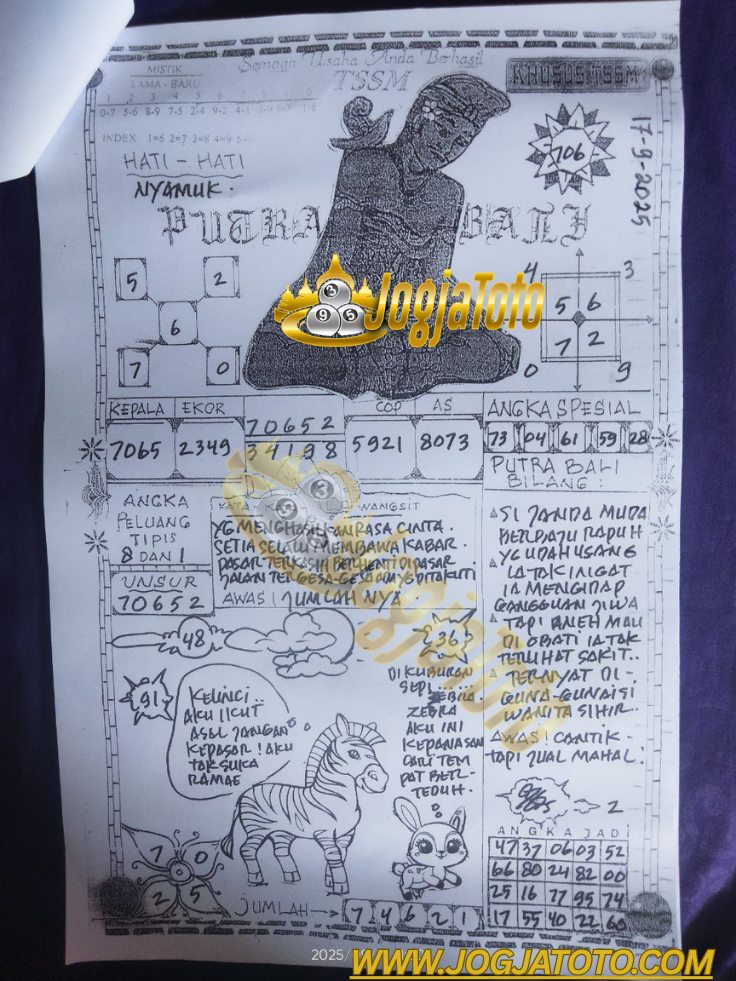 Semoga Usaha Anda Berhasil
TSSM
KHUSUS TSSM
MISTIK
LAMA - BARU
1 2 3 4 5
0-7 5-6 8-9 7-5 2-4 9-2 4-1
INDEX 1=6 2=7 3=8 4=9
HATI - HATI
NYAMUK.
706
17-9-2025
PUTRA BALI
5 2
6
7 0
JogjaToto
3
9 5
4 3
5 6
7 2
0 9
KEPALA EKOR
7065 2349
70652
34198
COP AS
5921 8073
ANGKA SPESIAL
73 04 61 59 28
PUTRA BALI
BILANG :
ANGKA
PELUANG
TIPIS
8 DAN 1
UNSUR
70652
WANGSIT
YG MENGHASILKAN RASA CINTA.
SETIA SELALU MEMBAWA KABAR.
PASAR TERKASIH BERHENTI DI PASAR
JALAN TERGESA-GESA
AWAS! JUMLAH NYA
SI JANDA MUDA
BERBAJU RAPUH
YG UDAH USANG
IA TAK INGAT
IA MENGIDAP
GANGGUAN JIWA
TAPI ANEH MAU
DI OBATI IA TAK
TERLIHAT SAKIT..
TERNYAT DI-
GUNA-GUNAISI
WANITA SIHIR.
AWAS! CANTIK-
TAPI JUAL MAHAL!
48
36
91
KELINCI..
AKU IKUT
ASAL JANGAN
KEPASAR! AKU
TAK SUKA
RAMAE
DI KUBURAN
SEPI.....
ZEBRA.
ZEBRA
AKU INI
KEPANASAN
CARI TEM
PAT BER-
TEDUH.
2
ANGKA JADI
47 37 06 03 52
66 80 24 82 00
25 16 77 95 74
17 55 40 22 60
7 0
2 5
JUMLAH → 7 4 6 2 1
2025/
WWW.JOGJATOTO.COM